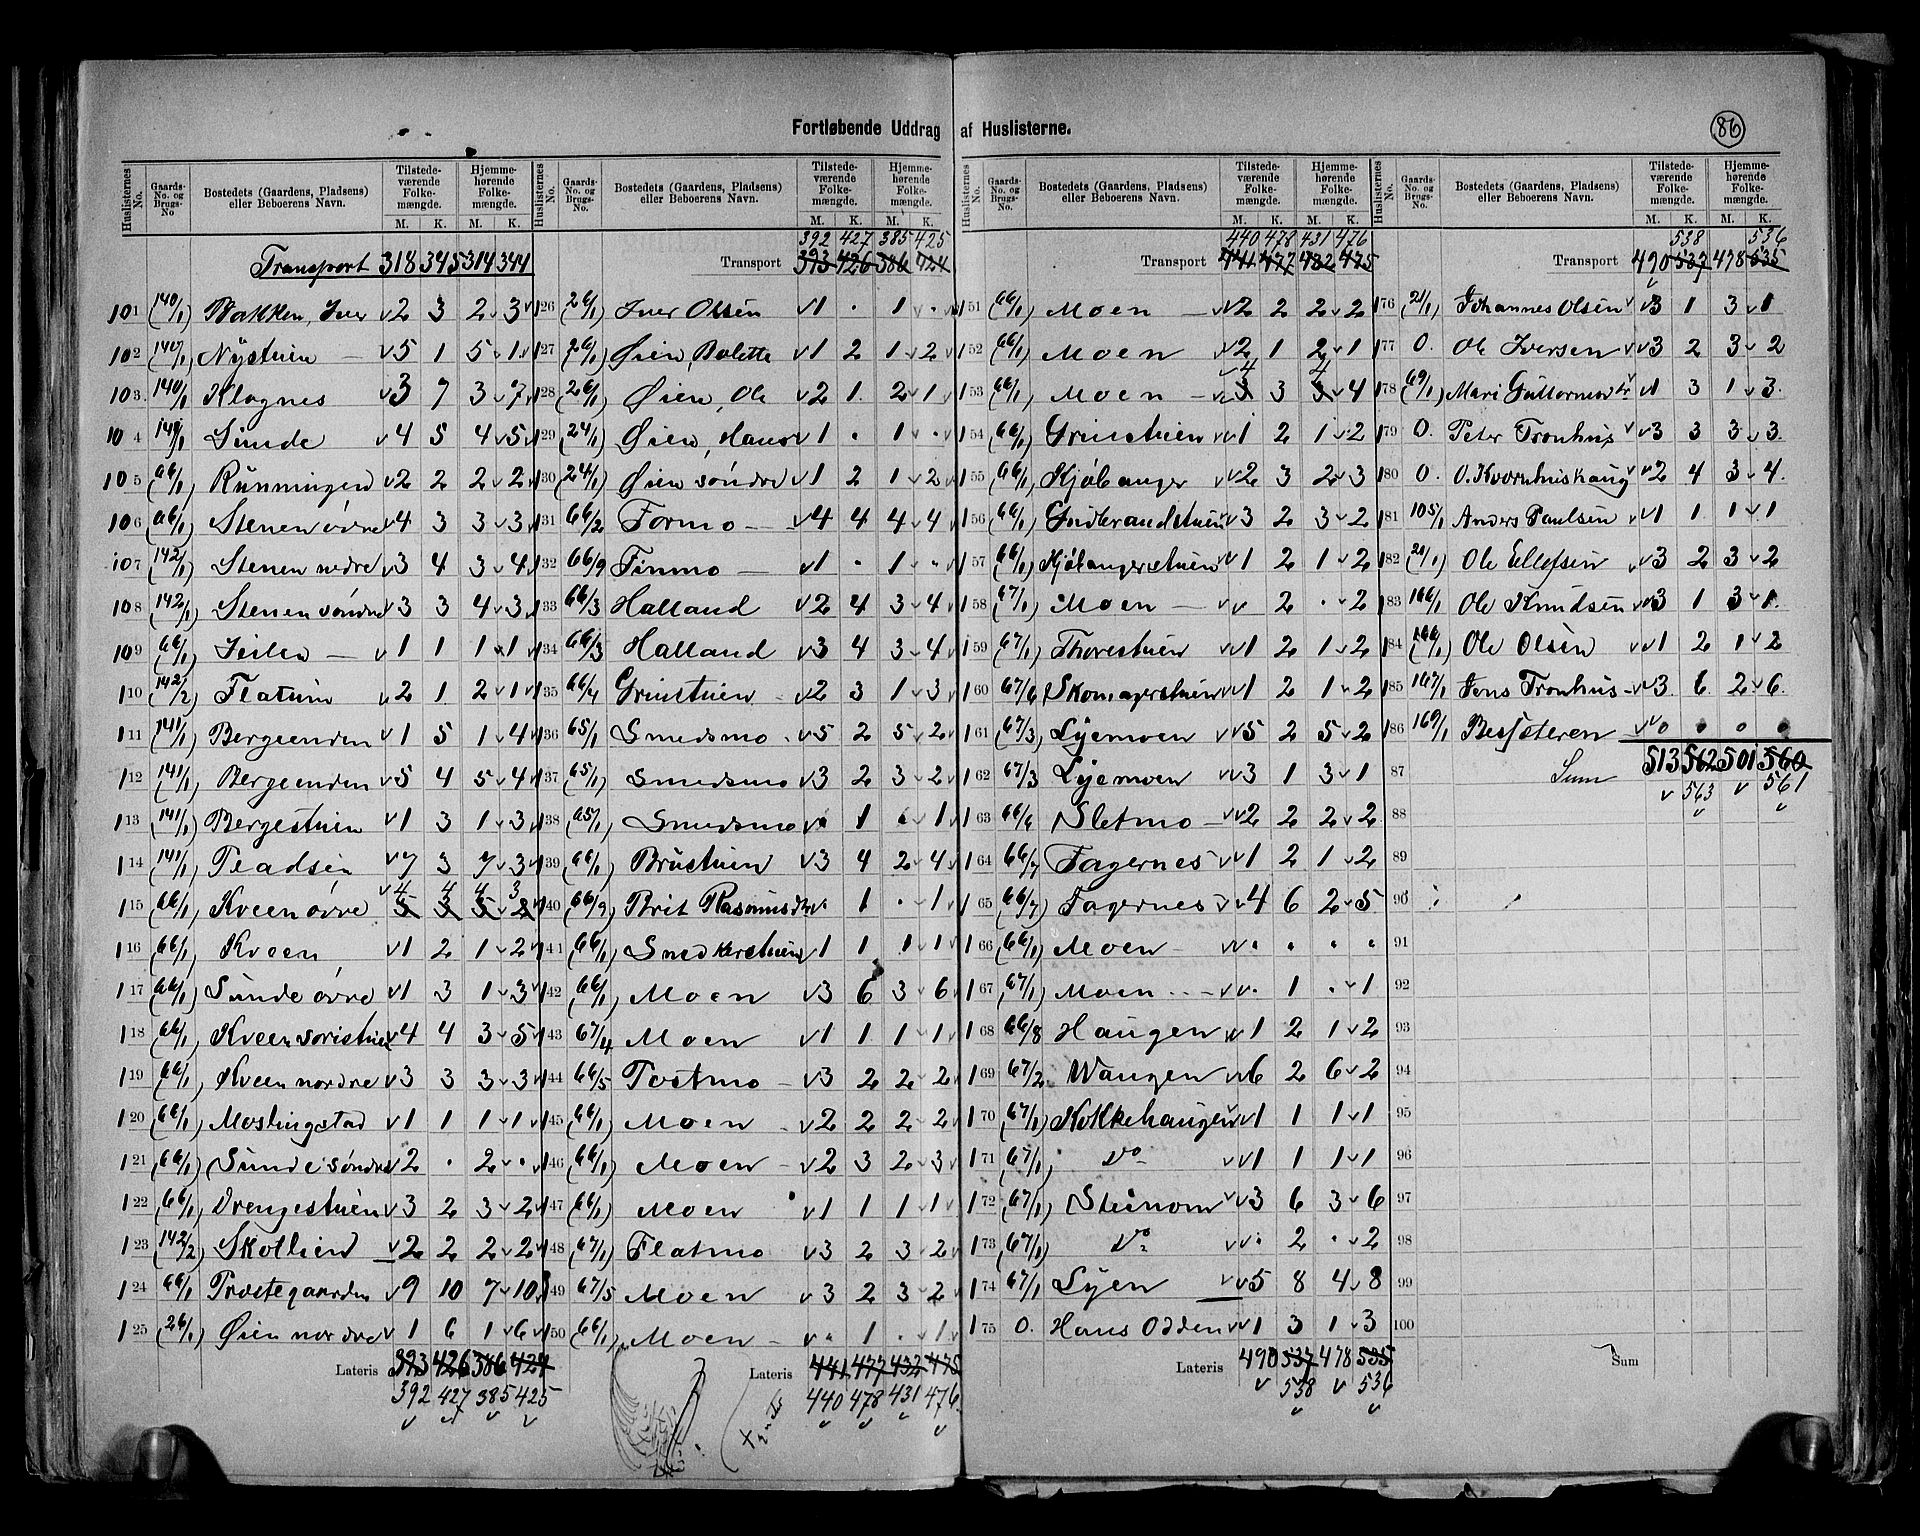 Fortløbende Uddrag af Huslisterne.
86
Huslisternes No. | Gaards-No. og Brugs-No | Bostedets (Gaardens, Pladsens) eller Beboerens Navn. | Tilstedeværende Folkemængde. M. K. | Hjemmehørende Folkemængde. M. K.
Transport 318 345 314 344
101 (140/1) Bakken, Iver 2 3 2 3
102 (140/1) Nystuen 5 1 5 1
103 140/1 Klognes 3 7 3 7
104 140/1 Sunde 4 5 4 5
105 (66/1) Runningen 2 2 2 2
106 (66/1) Stenen øvre 4 3 3 3
107 (142/1) Stenen nedre 3 4 3 4
108 (142/1) Stenen søndre 3 3 4 3
109 (66/1) 1 1 1 1
110 (142/2) Flatum 2 1 2 1
111 (141/1) Bergeenden 1 5 1 4
112 (141/1) Bergeenden 5 4 5 4
113 (141/1) Bergestuen 1 3 1 3
114 (141/1) Pladsen 7 3 7 3
115 (66/1) Kveen øvre 4 4 4 3
116 (66/1) Kveen 1 2 1 2
117 (66/1) Sunde øvre 1 3 1 3
118 (66/1) Kveen 4 4 3 5
119 (66/1) Kveen nordre 3 3 3 3
120 (66/1) Moslingstad 1 1 1 1
121 (66/1) Sunde søndre 2 . 2 .
122 (66/1) Drengestuen 3 2 3 2
123 (142/2) Skotlien 2 2 2 2
124 66/1 Præstegaarden 9 10 7 10
125 (26/1) Øien nordre 1 6 1 6
Lateris 393 426 386 424
392 427 385 425
Huslisternes No. | Gaards-No. og Brugs-No. | Bostedets (Gaardens, Pladsens) eller Beboerens Navn. | Tilstedeværende Folkemængde. M. K. | Hjemmehørende Folkemængde. M. K.
392 427 385 425
Transport 393 426 386 424
126 (26/1) Iver Olsen 1 . 1 .
127 (26/1) Øien, Bolette 1 2 1 2
128 (26/1) Øien, Ole 2 1 2 1
129 (24/1) Øien, Hans 1 . 1 .
130 (24/1) Øien søndre 1 2 1 2
131 66/2 Formo 4 4 4 4
132 66/9 Finmo 1 . 1 .
133 66/3 Halland 2 4 3 4
134 66/3 Halland 3 4 3 4
135 66/4 Grinstuen 2 3 1 3
136 65/1 Smedsmo 5 2 5 2
137 (65/1) Smedsmo 3 2 3 2
138 (65/1) Smedsmo . 1 . 1
139 (66/1) Brustuen 3 4 2 4
140 (66/9) Brit Rasmusdtr . 1 . 1
141 (66/1) Snedkerstuen 1 1 1 1
142 (66/1) Moen 3 6 3 6
143 67/4 Moen 1 1 1 1
144 66/5 Tostmo 3 2 2 2
145 (66/1) Moen 2 2 2 2
146 (66/1) Moen 2 3 2 3
147 (66/1) Moen 1 1 1 1
148 (67/1) Flatmo 3 2 3 2
149 67/5 Moen 3 2 3 2
150 (66/1) Moen . 1 . 1
Lateris 441 477 432 475
440 478 431 476
Huslisternes No. | Gaards-No. og Brugs-No. | Bostedets (Gaardens, Pladsens) eller Beboerens Navn. | Tilstedeværende Folkemængde. M. K. | Hjemmehørende Folkemængde. M. K.
440 478 431 476
Transport 441 477 432 475
151 (66/1) Moen 2 2 2 2
152 (66/1) Moen 2 1 2 1
153 (66/1) Moen 4 3 4 4
154 (66/1) Grinstuen 1 2 1 2
155 (66/1) Kjøbanger 2 3 2 3
156 (66/1) Gudbrandstuen 3 2 3 2
157 (66/1) Kjøbangerstuen 1 2 1 2
158 (67/1) Moen 2 . 2
159 (67/1) Thorestuen 1 2 1 2
160 67/6 Skomagerstuen 1 2 1 2
161 (67/3) Lyemoen 5 2 5 2
162 67/3 Lyemoen 3 1 3 1
163 66/6 Sletmo 2 2 2 2
164 66/7 Fagernes 1 2 1 2
165 (66/7) Fagernes 4 6 2 5
166 (66/1) Moen . . . .
167 (67/1) Moen . 1 . 1
168 66/8 Haugen 1 2 1 2
169 67/2 Wangen 6 2 6 2
170 (67/1) Kokkehaugen 1 1 1 1
171 (67/1) Do 1 1 1 1
172 (67/1) Steinom 3 6 3 6
173 (67/1) Do . 2 . 2
174 67/1 Lyen 5 8 4 8
175 0. Hans Odden 1 3 1 3
Lateris 490 537 478 535
538 536
Huslisternes No. | Gaards-No. og Brugs-No. | Bostedets (Gaardens, Pladsens) eller Beboerens Navn. | Tilstedeværende Folkemængde. M. K. | Hjemmehørende Folkemængde. M. K.
538 536
Transport 490 537 478 535
176 (21/1) Johannes Olsen 3 1 3 1
177 0. Ole Iversen 3 2 3 2
178 (69/1) Mari Guttormsdtr 1 3 1 3
179 0. Peter Tronhus 3 3 3 3
180 0. O. Kvornhushaug 2 4 3 4
181 105/1 Anders Paulsen 1 1 1 1
182 (21/1) Ole Ellefsen 3 2 3 2
183 166/1 Ole Knudsen 3 1 3 1
184 (166/1) Ole Olsen 1 2 1 2
185 167/1 Jens Tronhus 3 6 2 6
186 169/1 Bessteren 0 0 0 0
87 Sum 513 562 501 560
563 561
88
89
90
91
92
93
94
95
96
97
98
99
100
Sum